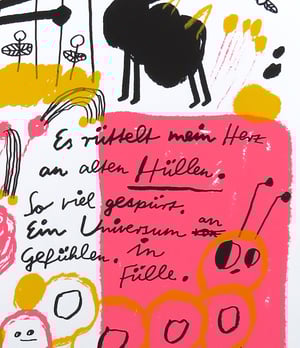 Es rüttelt mein Herz
an alten Hüllen.
So viel gespürt.
Ein Universum an
Gefühlen. in
Fülle.